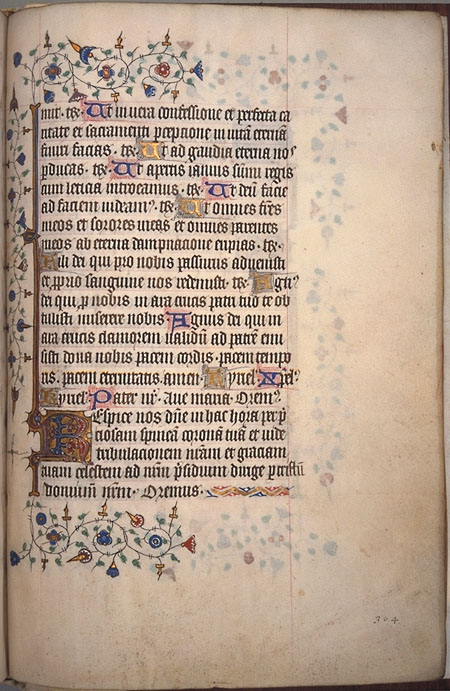 mur. tr. Ut in uera confessione et perfecta ca
ritate et sacramenti pcepcione in uitam eternā
finiri facias. tr. Ut ad gaudia eterna nos
pducas. tr. Ut apertis ianuis summi regis
cum leticia introeamus. tr. Ut deū facie
ad faciem uideam9. tr. Ut omnes fr̄es
meos et sorores meas et omnes parentes
meos ab eterna dampnacione eripias. tr.
Fili dei qui pro nobis passurus aduenisti
et pprio sanguine nos redemisti. tr. Agn9
dei qui p nobis in ara crucis patri tuo te ob
tulisti miserere nobis. Agnus dei qui in
ara crucis clamorem ualidū ad patrem emi
sisti dona nobis pacem cordis. pacem tempo
ris. pacem eternitatis. amen. Kyriel. Xp̄el.
Kyriel. Pater nr̄. Aue maria. Orem9.
Respice nos dn̄e in hac hora per p
ciosam spineā coronā tuā et uide
tribulacionem nr̄am et graciam
tuam celestem ad nr̄m p̄sidium dirige per xp̄m
dominum nr̄m. Oremus.
304